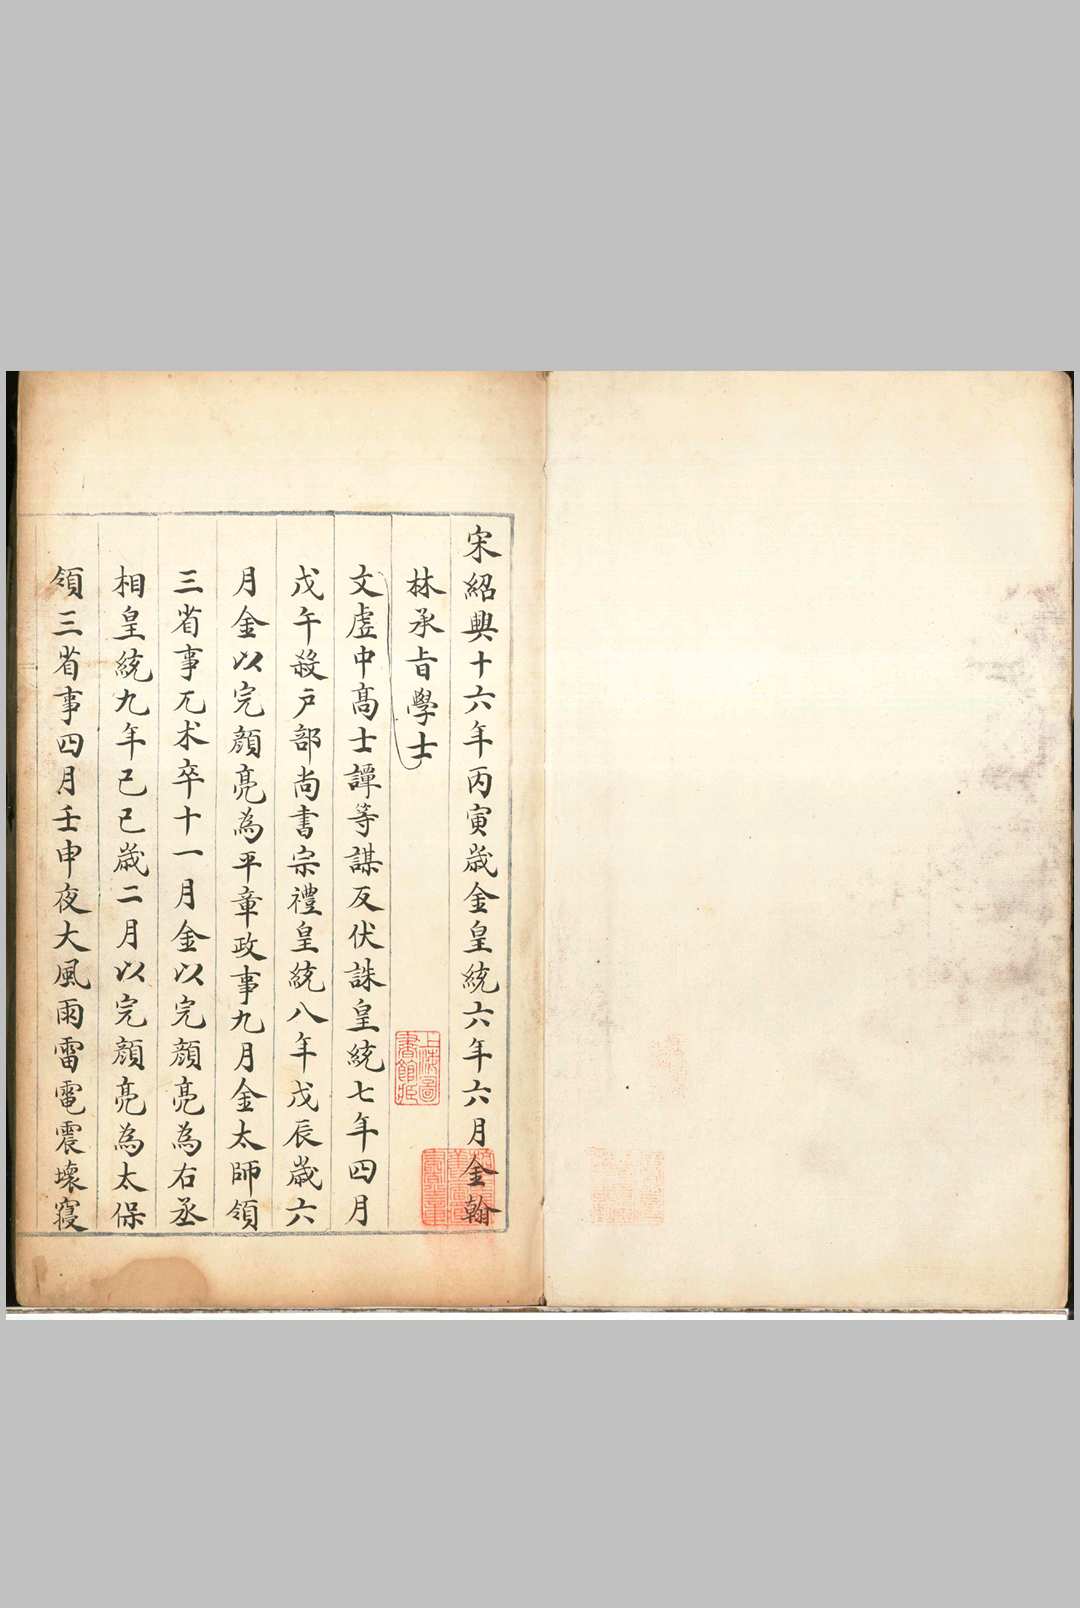 宋紹興十六年丙寅歲金皇統六年六月金翰
林承旨學士
文虛中高士譚等謀反伏誅皇統七年四月
戊午殺戶部尚書宗禮皇統八年戊辰歲六
月金以完顏亮為平章政事九月金太師領
三省事兀朮卒十一月金以完顏亮為右丞
相皇統九年己巳歲二月以完顏亮為太保
領三省事四月壬申夜大風雨雷電震壞寢
上海圖書館藏